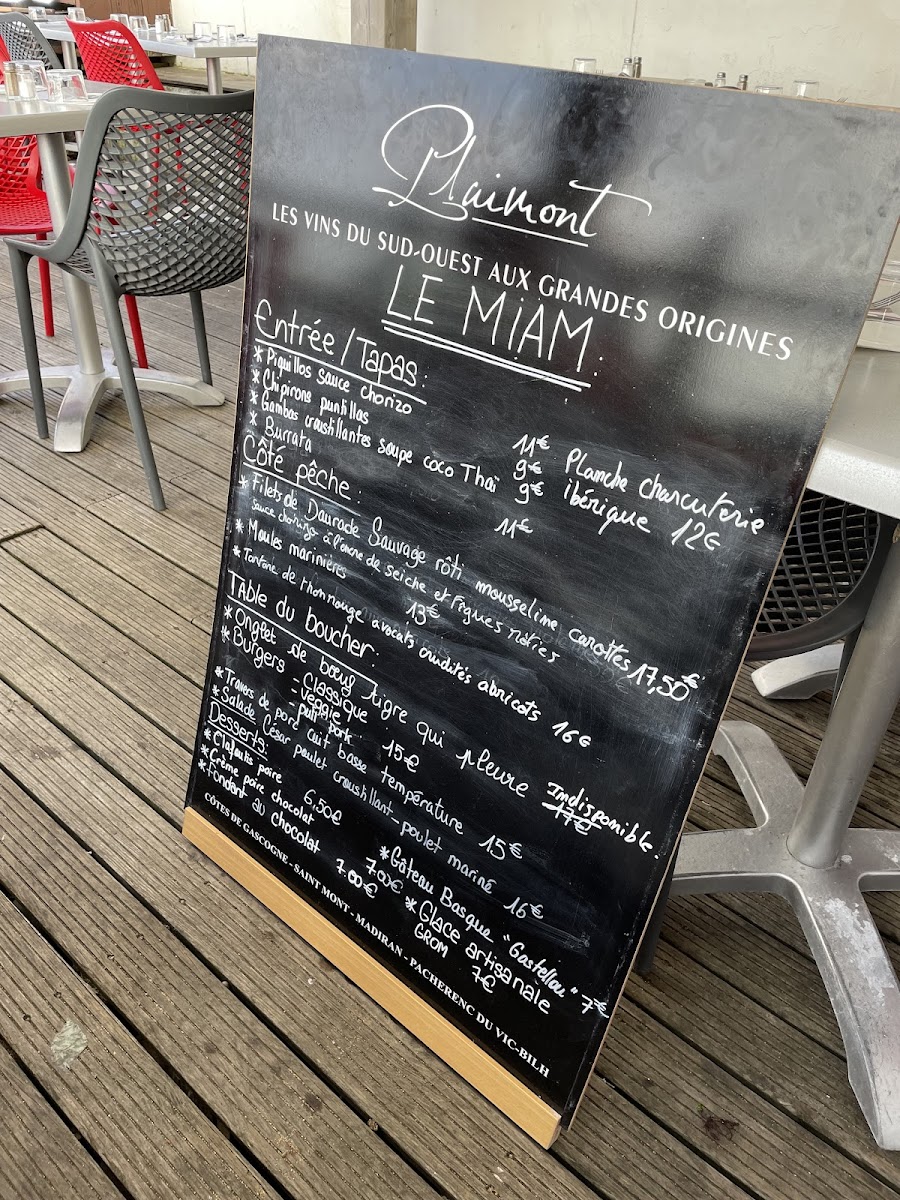 Plaimont
LES VINS DU SUD-OUEST AUX GRANDES ORIGINES
LE MIAM:
Entrée/Tapas:
* Piquillos sauce chorizo 11€
* Chipirons puntillas 9€
* Gambas croustillantes soupe coco Thaï 9€
* Burrata 11€
Planche charcuterie
ibérique 12€
Côté pêche:
* Filets de Daurade Sauvage rôti mousseline carottes 17,50€
sauce chorizo à l'encre de seiche et Figues rôties
* Moules marinières 13€
* Tartare de thon rouge avocats crudités abricots 16€
Table du boucher:
* Onglet de bœuf tigre qui pleure Indisponible.
17€
* Burgers - Classique
- Veggie
- pull pork 15€
* Travers de porc cuit basse température 15€
* Salade César poulet croustillant_poulet mariné 16€
Desserts:
* Clafoutis poire 6,50€
* Crème poire chocolat 7.00€
* Fondant au chocolat 7.00€
* Gâteau Basque "Gastellou" 7€
* Glace artisanale
GROM 7€
CÔTES DE GASCOGNE - SAINT MONT - MADIRAN - PACHERENC DU VIC-BILH